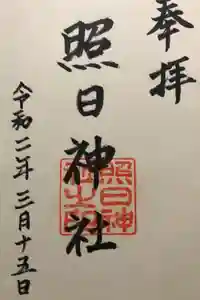 奉拝
照日神社
照日神社之印
令和二年三月十五日